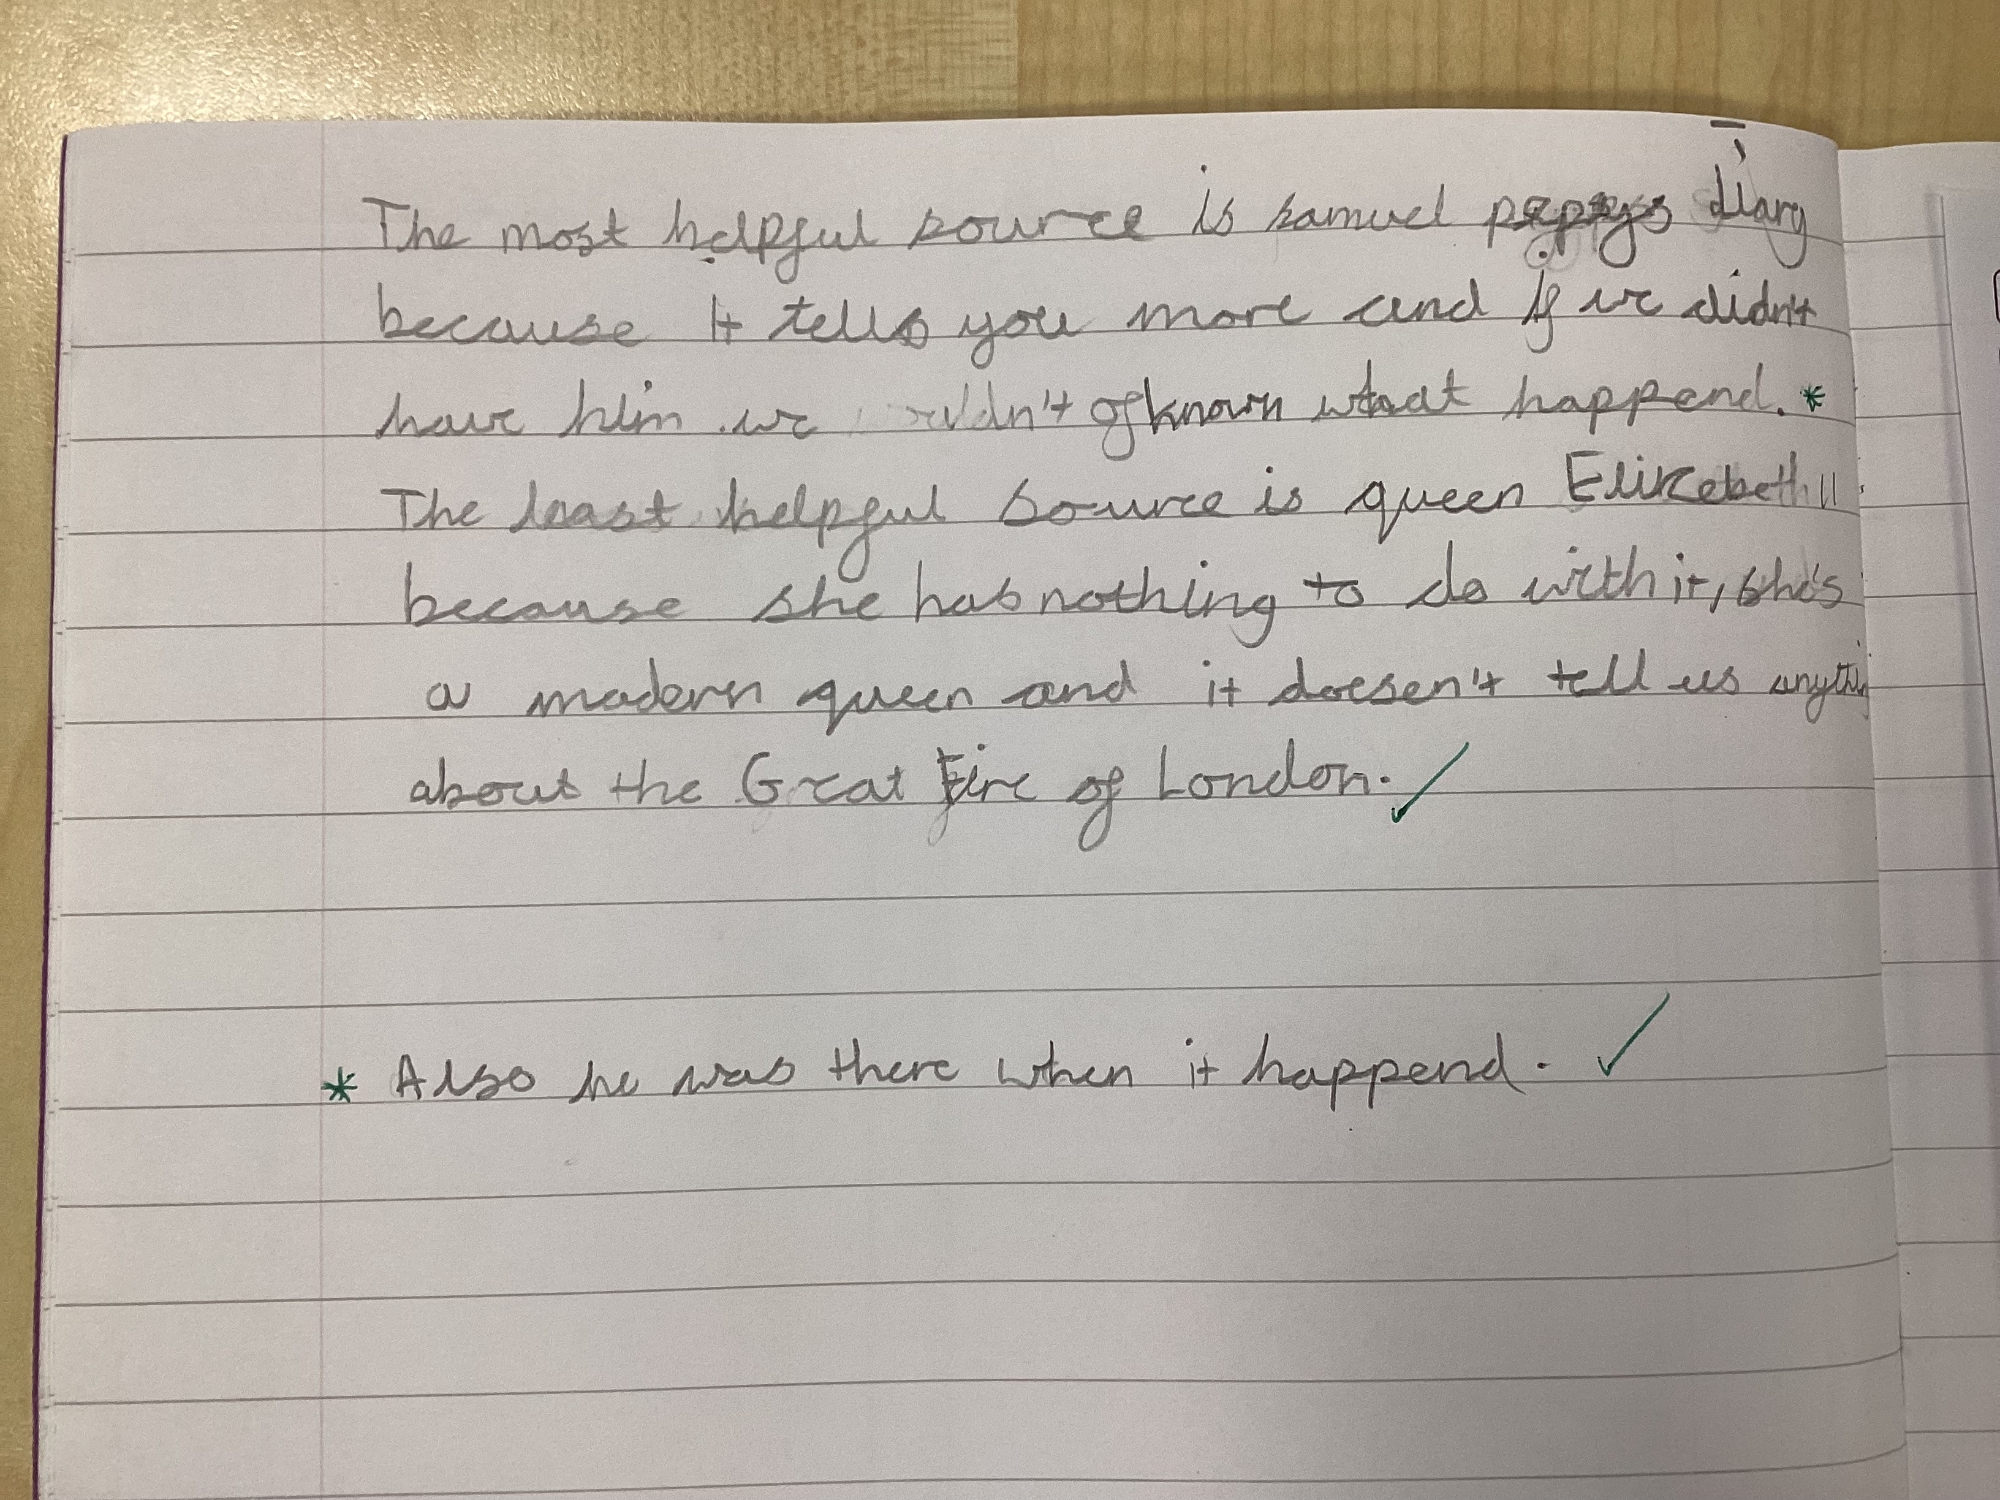 The most helpful source is samuel pepys diary
because It tells you more and If we didn't
have him we of known what happend. *
The least helpful source is queen Elizebeth II
because she has nothing to do with it, she's
a modern queen and it doesen't tell us anythin
about the Great Fire of London.
* Also he was there when it happend.